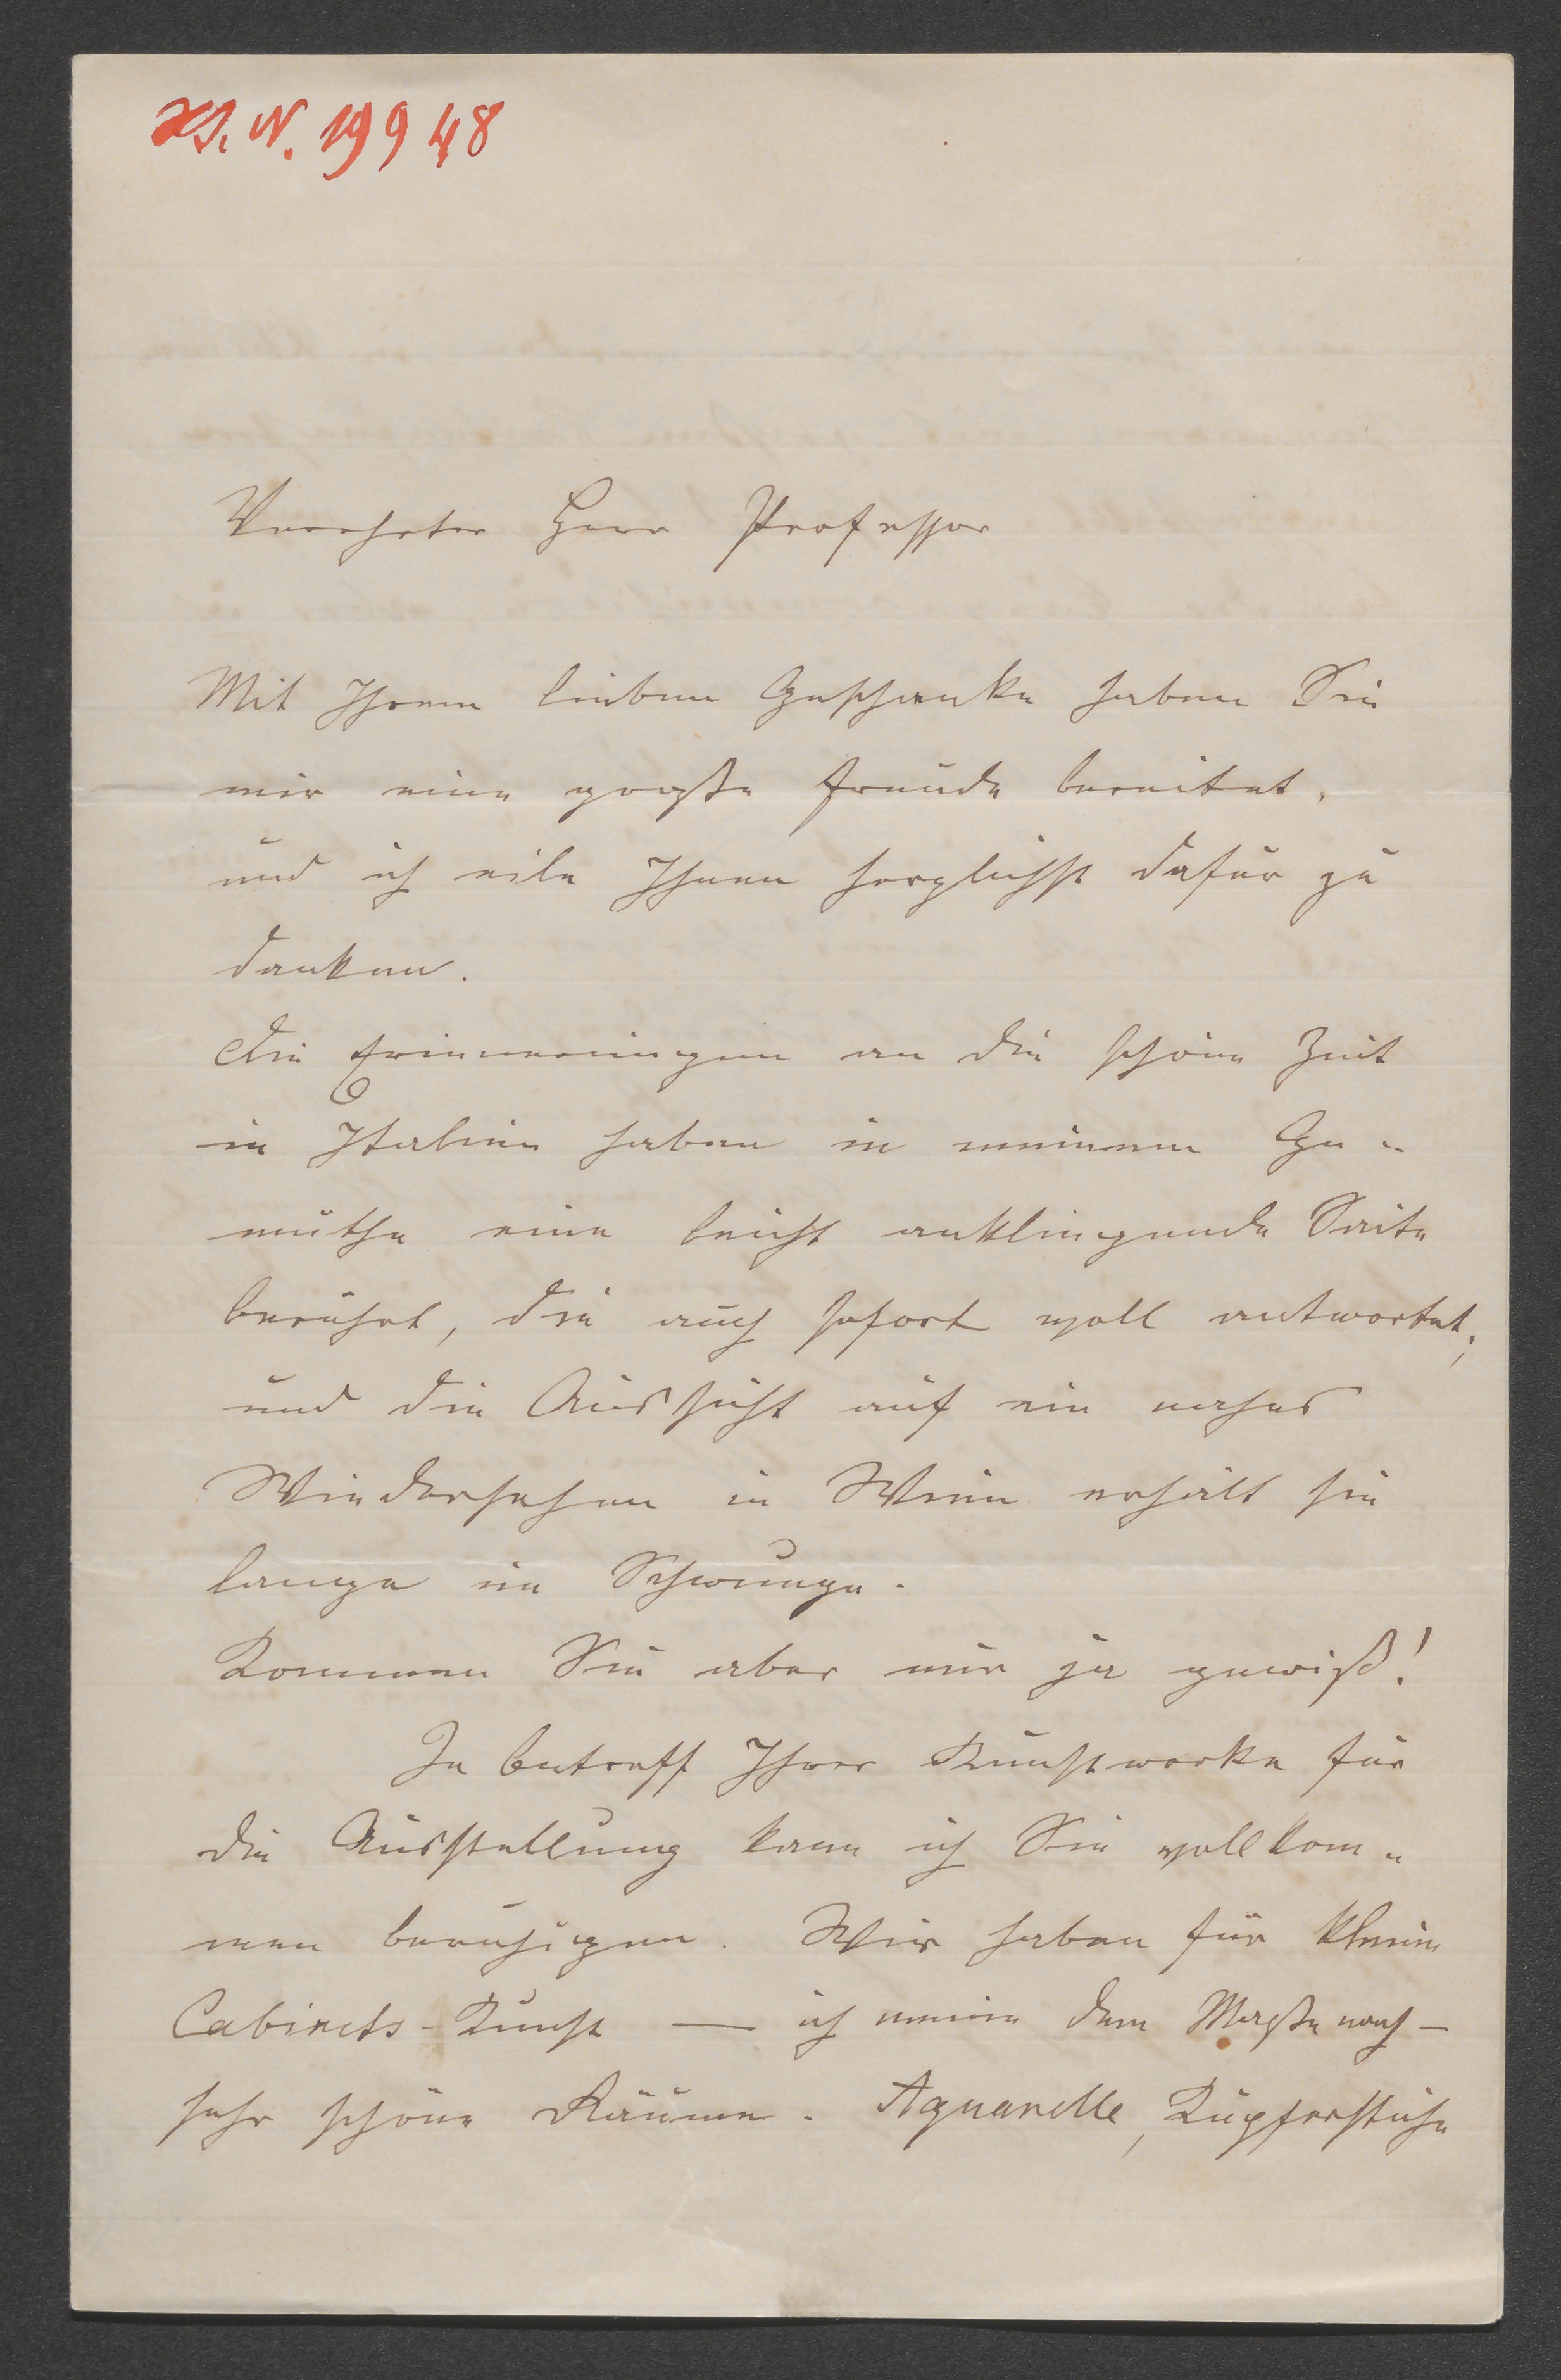 H. I. N. 19948
Verehrter Herr Professor
Mit Ihrem lieben Geschenke haben Sie
mir eine große Freude bereitet,
und ich eile Ihnen herzlichst dafür zu
danken.
Die Erinnerungen an die schöne Zeit
in Italien haben in meinem Ge-
müthe eine leicht anklingende Saite
berührt, die auch sofort voll antwortet;
und die Aussicht auf ein nahes
Wiedersehen in Wien erhält sie
lange im Schwunge.
Kommen Sie aber nur ja gewiß!
In betreff Ihrer Kunstwerke für
die Ausstellung kann ich Sie vollkom-
men beruhigen. Wir haben für kleine
Cabinets-Kunst — ich meine dem Maße nach —
sehr schöne Räume. Aquarelle, Kupferstiche